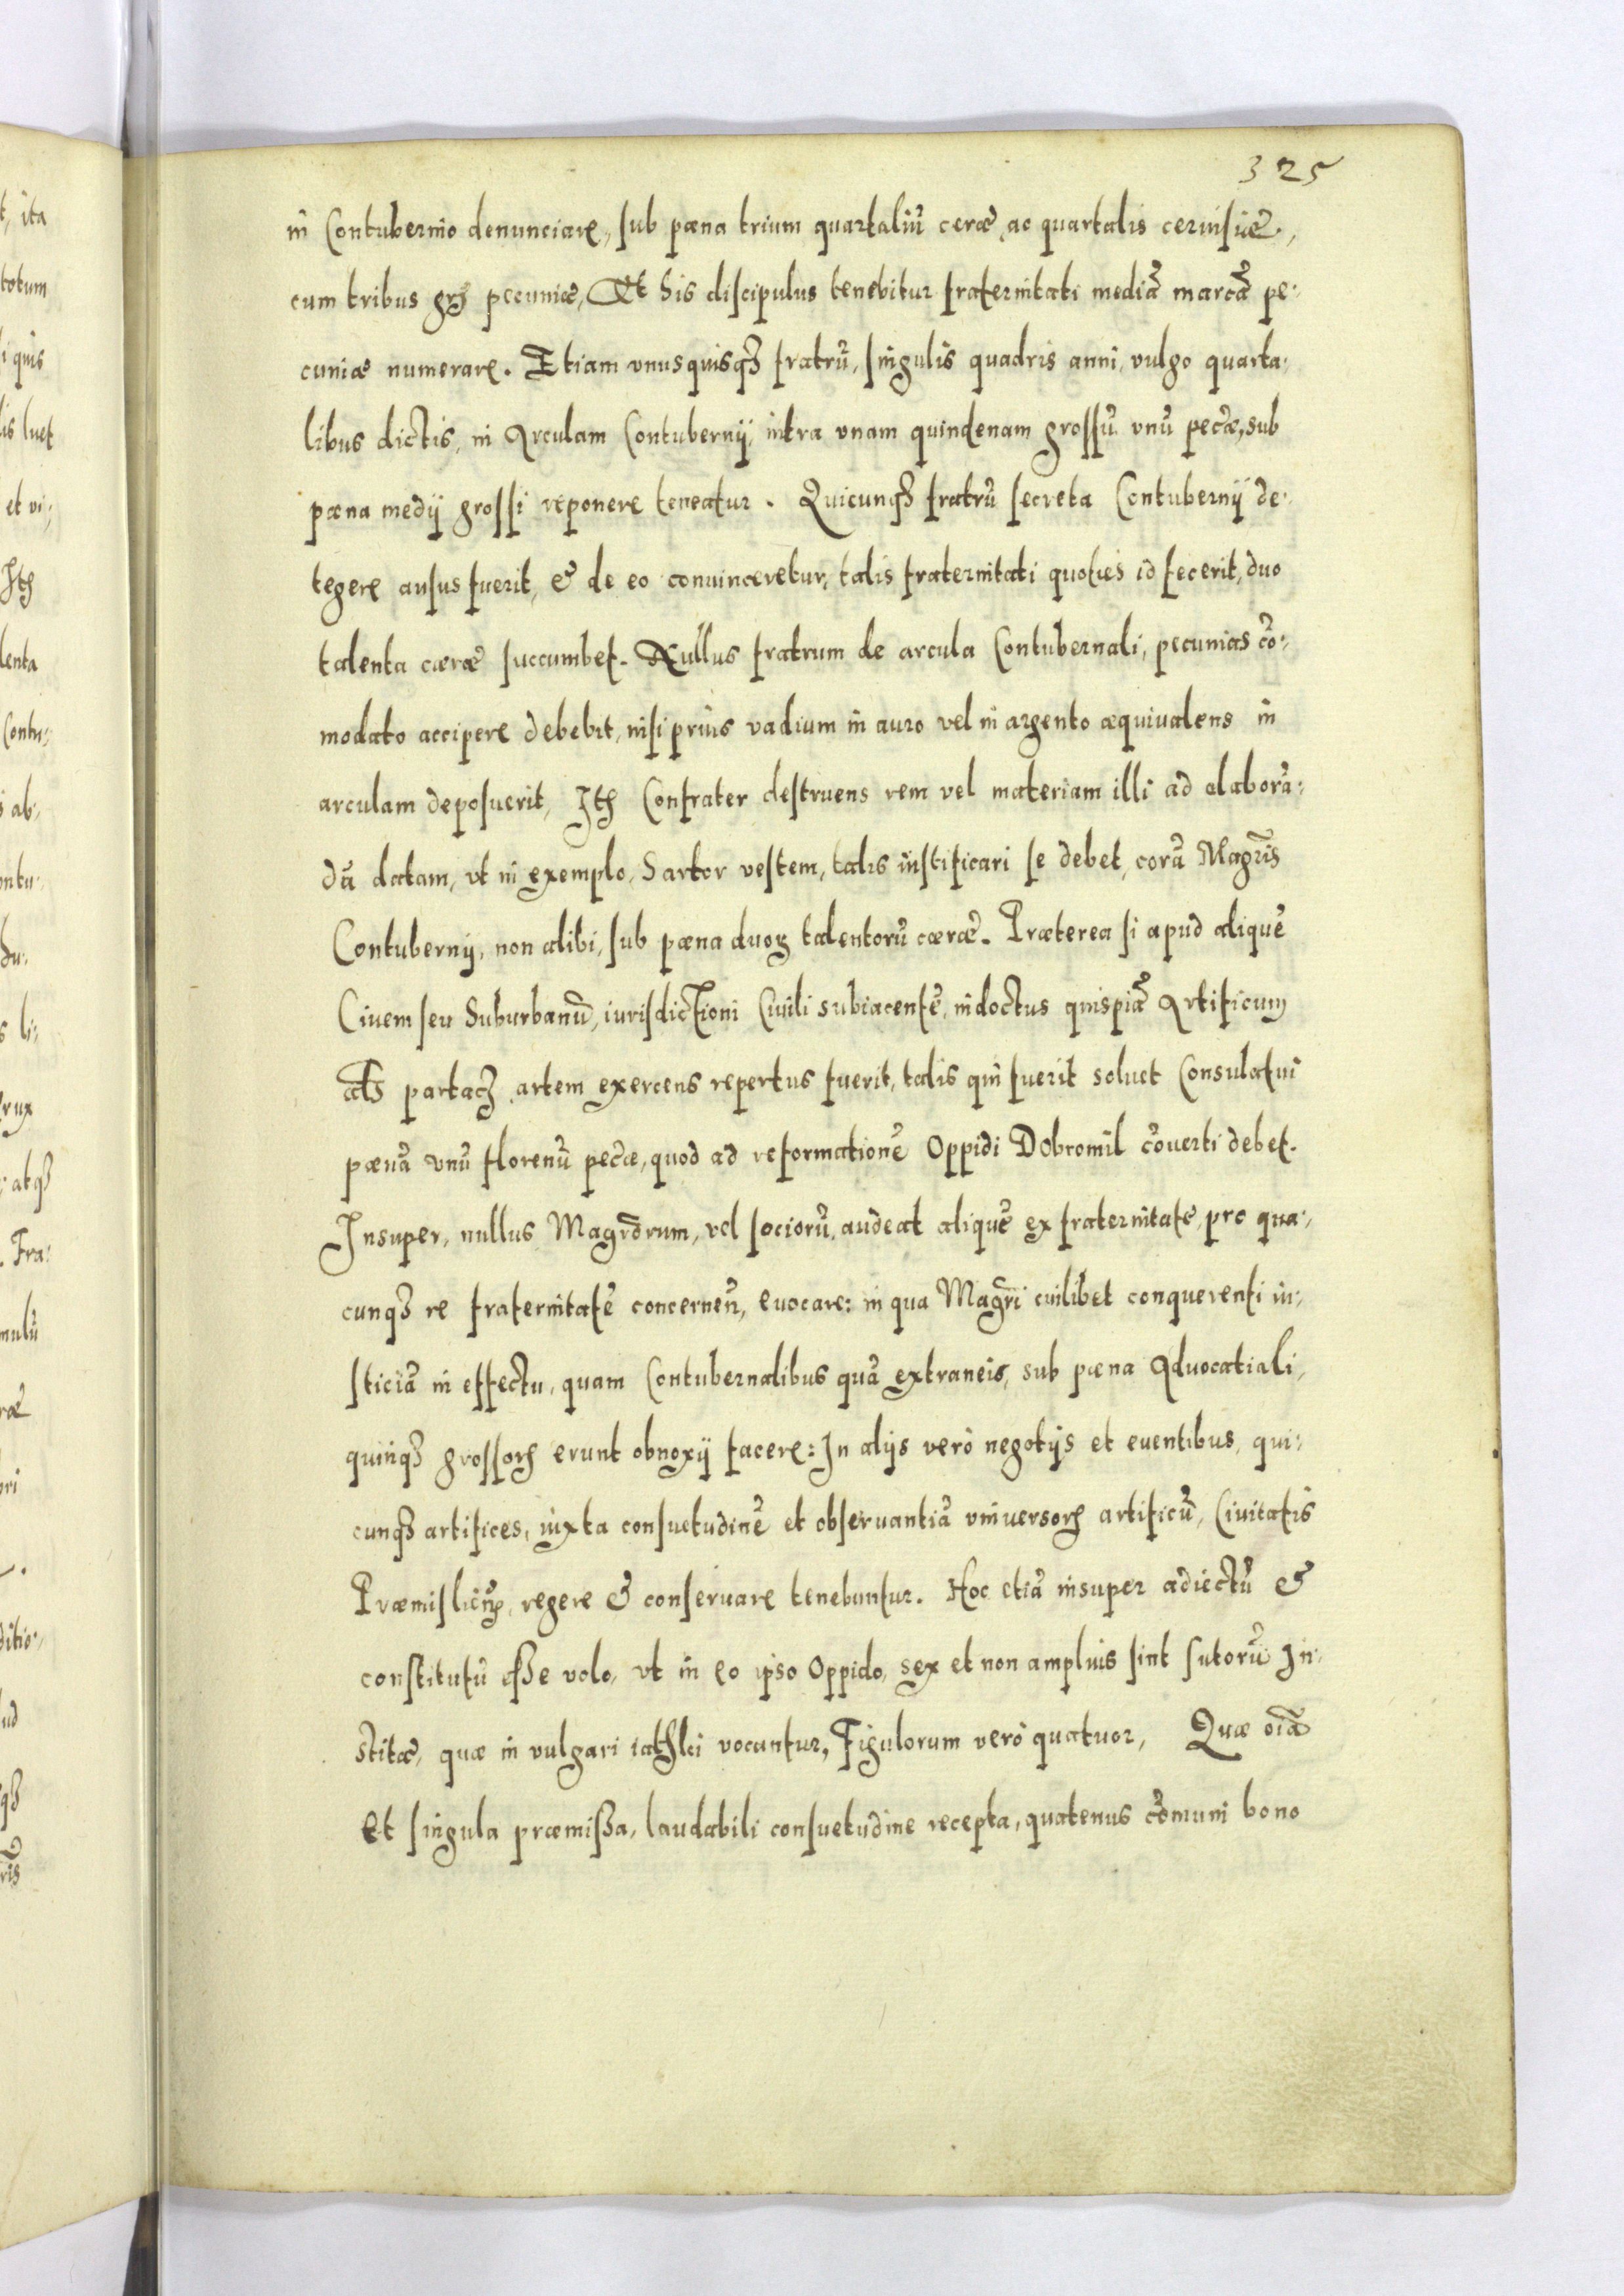 325
in Contubernio denunciare, sub pæna trium quartaliũ ceræ, ac quartalis ceruisiæ,
cum tribus grs pecuniæ, Et his discipulus tenebitur fraternitati mediã marcã pe:
cuniæ numerare. Etiam vnusquisq₃ fratrũ, singulis quadris anni, vulgo quarta:
libus dictis, in Arculam Contubernij, intra vnam quindenam grossũ vnũ pecæ, sub
pæna medij grossi reponere teneatur. Quicunq₃ fratrũ secreta Contubernij de:
tegere ausus fuerit, & de eo conuinceretur, talis fraternitati quoties id fecerit, duo
talenta cæræ succumbet. Nullus fratrum de arcula Contubernali, pecunias cõ:
modato accipere debebit, nisi prius vadium in auro vel in argento æquiualens in
arculam deposuerit, Itꝫ Confrater destruens rem vel materiam illi ad elaborã:
dũ datam, vt in exemplo, Sartor vestem, talis iustificari se debet, corã Magr̃is
Contubernij, non alibi, sub pæna duoꝝ talentorũ cæræ. Præterea si apud aliquẽ
Ciuem seu Suburbanũ, iurisdictioni Ciuili subiacentẽ, indoctus quispiã Artificum
als partacz artem exercens repertus fuerit, talis qui fuerit soluet Consulatui
pænã vnũ florenũ pecæ, quod ad reformationẽ Oppidi Dobromil cõuerti debet.
Insuper, nullus Magr̃orum, vel sociorũ, audeat aliquẽ ex fraternitate, pro qua:
cunq₃ re fraternitatẽ concernen̄, euocare: in qua Magr̃i cuilibet conquerenti iu:
sticiã in effectu, quam Contubernalibus quã extraneis, sub pæna Aduocatiali,
quinq₃ grossorꝫ erunt obnoxij facere: In alijs verò negotijs et euentibus, qui:
cunq₃ artifices, iuxta consuetudinẽ et obseruantiã vniuersorꝫ artificũ, Ciuitatis
Præmislien̄, regere & conseruare tenebuntur. Hoc etiã insuper adiectũ &
constitutũ esse volo, vt in eo ipso Oppido, sex et non amplius sint sutorũ In:
stitæ, quæ in vulgari iathki vocantur, Figulorum verò quatuor, Quæ oĩa
Et singula præmissa, laudabili consuetudine recepta, quatenus cõmuni bono